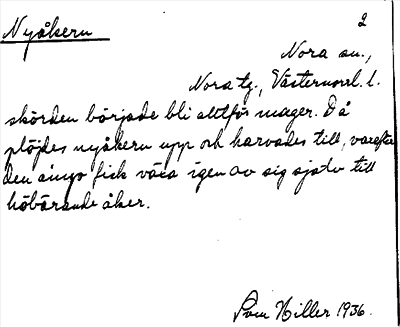 Nyåkern 2
Nora sn.,
Nora tg., Västernorrl. l.
skörden började bli alltför mager. Då
plöjdes nyåkern upp och harvades till, varefter
den ånyo fick växa igen av sig självt till
höbärande åker.
Sven Hiller 1936.